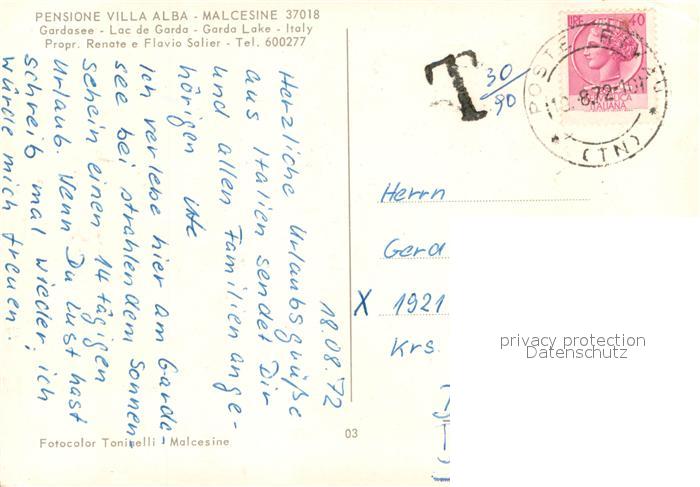 PENSIONE VILLA ALBA - MALCESINE 37018
Gardasee - Lac de Garda - Garda Lake - Italy
Propr. Renate e Flavio Salier - Tel. 600277
18.08.72
Herzliche Urlaubsgrüße
aus Italien sendet Dir
und allen Familienange-
hörigen Ute
Ich verlebe hier am Garda-
see bei strahlendem Sonnen-
schein einen 14 tägigen
Urlaub. Wenn Du Lust hast
schreib mal wieder, ich
würde mich freuen.
T
30
90
LIRE 40
ITALIANA
POSTE
8.72
(TN)
Herrn
Gerd
X 1921
Krs.
privacy protection
Datenschutz
Fotocolor Toninelli - Malcesine
03